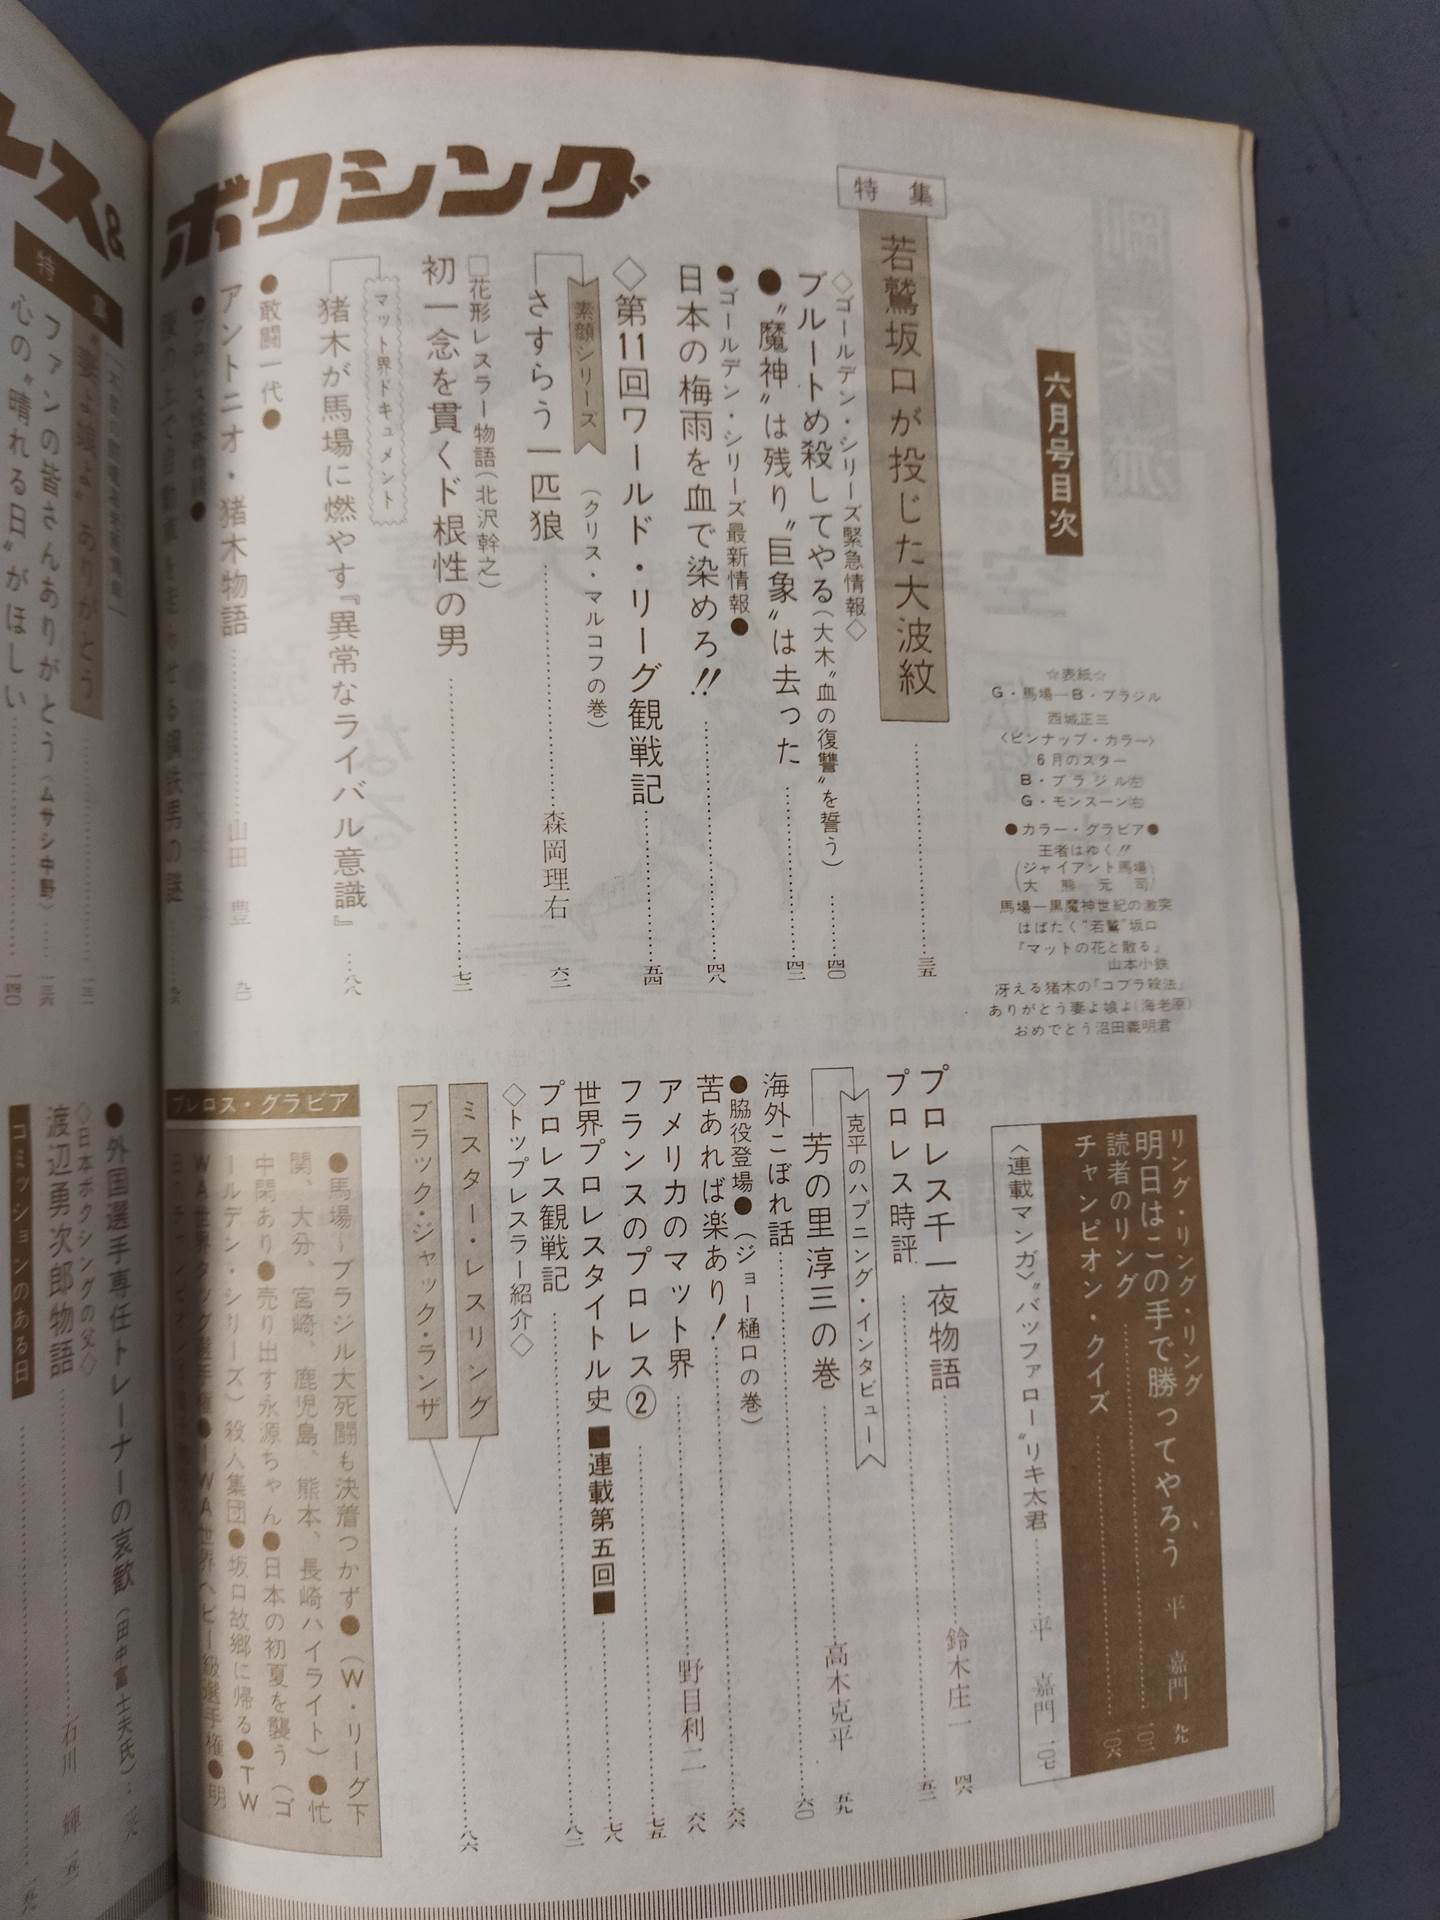 ボクシング
六月号目次
☆表紙☆
G・馬場―B・ブラジル
西城正三
〈ピンナップ・カラー〉
6月のスター
B・ブラジル㊧
G・モンスーン㊨
●カラー・グラビア●
王者はゆく!!
(ジャイアント馬場
大熊元司)
馬場―黒魔神世紀の激突
はばたく“若鷲”坂口
『マットの花と散る』
山本小鉄
冴える猪木の『コブラ殺法』
ありがとう妻よ娘よ(海老原)
おめでとう沼田義明君
特集
若鷲坂口が投じた大波紋 三五
◇ゴールデン・シリーズ緊急情報◇
ブルートめ殺してやる(大木“血の復讐”を誓う) 四〇
●“魔神”は残り“巨象”は去った 四二
●ゴールデン・シリーズ最新情報●
日本の梅雨を血で染めろ!! 四八
◇第11回ワールド・リーグ観戦記 五四
素顔シリーズ
(クリス・マルコフの巻)
さすらう一匹狼 森岡理右 六二
□花形レスラー物語(北沢幹之)
初一念を貫くド根性の男 七二
マット界ドキュメント
猪木が馬場に燃やす『異常なライバル意識』 八八
●敢闘一代●
アントニオ・猪木物語 山田 豊 九〇
リング・リング・リング・リング
明日はこの手で勝ってやろう 平 嘉門 九九
読者のリング 一〇二
チャンピオン・クイズ 一〇六
〈連載マンガ〉“バッファロー”リキ太君 平 嘉門 一〇七
プロレス千一夜物語 鈴木庄一 四六
プロレス時評 五二
克平のハプニング・インタビュー
芳の里淳三の巻 高木克平 五九
海外こぼれ話 六〇
●脇役登場●(ジョー樋口の巻)
苦あれば楽あり! 六六
アメリカのマット界 野目利二 六八
フランスのプロレス② 七五
世界プロレスタイトル史■連載第五回■ 七八
プロレス観戦記 八二
◇トップレスラー紹介◇
ミスター・レスリング
ブラック・ジャック・ランザ 八六
プレロス・グラビア
●馬場―ブラジル大死闘も決着つかず●(W・リーグ下
関、大分、宮崎、鹿児島、熊本、長崎ハイライト)●忙
中閑あり●売り出す永源ちゃん●日本の初夏を襲う(ゴ
ールデン・シリーズ)殺人集団●坂口故郷に帰る●TW
WA世界タッグ選手権●IWA世界ヘビー級選手権●明
ース&
特集
“妻よ娘よ”ありがとう
ファンの皆さんありがとう(ムサシ中野) 一三六
心の“晴れる日”がほしい 一四〇
●外国選手専任トレーナーの哀歓(田中富士夫氏)
◇日本ボクシングの父◇
渡辺勇次郎物語 石川 輝
コミッションのある日